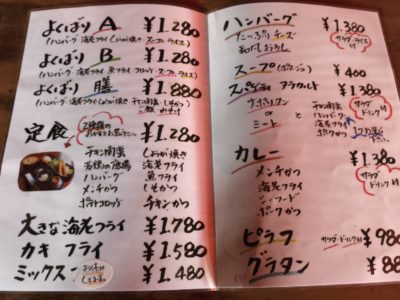 よくばり A ¥1.280
(ハンバーグ 海老フライ しょうが焼き スープ ライス)
よくばり B ¥1.280
(ハンバーグ 魚フライ コロッケ スープ ライス)
よくばり 膳 ¥1.880
定食 ¥1.280
2種類の
チキン南蛮
ハンバーグ
メンチかつ
ポテトコロッケ
しょうが焼き
海老フライ
魚フライ
しそかつ
チキンかつ
大きな海老フライ ¥1.780
カキ フライ ¥1.580
ミックス ¥1.480
ハンバーグ ¥1.380
たっぷりチーズ
和風おろし
サラダ ライス付
スープ ¥400
スパゲティ ¥1.380
サラダ付
ナポリタン
or
ミート
と
チキン南蛮
ハンバーグ
海老フライ
ポークかつ
カレー ¥1.380
サラダ
ドリンク付
メンチかつ
海老フライ
シーフード
ポークかつ
ピラフ サラダ・ドリンク付 ¥980
グラタン